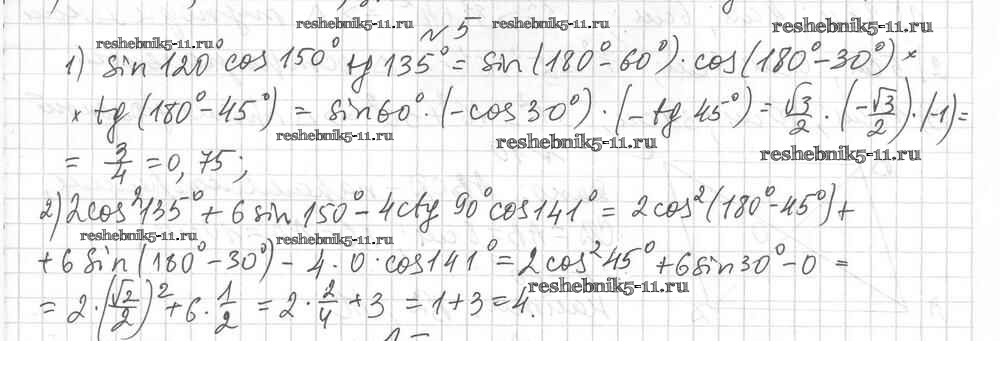 reshebnik5-11.ru № 5 reshebnik5-11.ru reshebnik5-11.ru
reshebnik5-11.ru
1) sin 120° cos 150° tg 135° = sin (180° - 60°) · cos (180° - 30°) ×
× tg (180° - 45°) = sin 60° · (-cos 30°) · (-tg 45°) = √3/2 · (-√3/2) · (-1) =
reshebnik5-11.ru reshebnik5-11.ru reshebnik5-11.ru
= 3/4 = 0,75;
2) 2cos² 135° + 6 sin 150° - 4ctg 90° cos 141° = 2cos² (180° - 45°) +
reshebnik5-11.ru reshebnik5-11.ru
+ 6 sin (180° - 30°) - 4 · 0 · cos 141° = 2 cos² 45° + 6 sin 30° - 0 =
reshebnik5-11.ru
= 2 · (√2/2)² + 6 · 1/2 = 2 · 2/4 + 3 = 1 + 3 = 4.